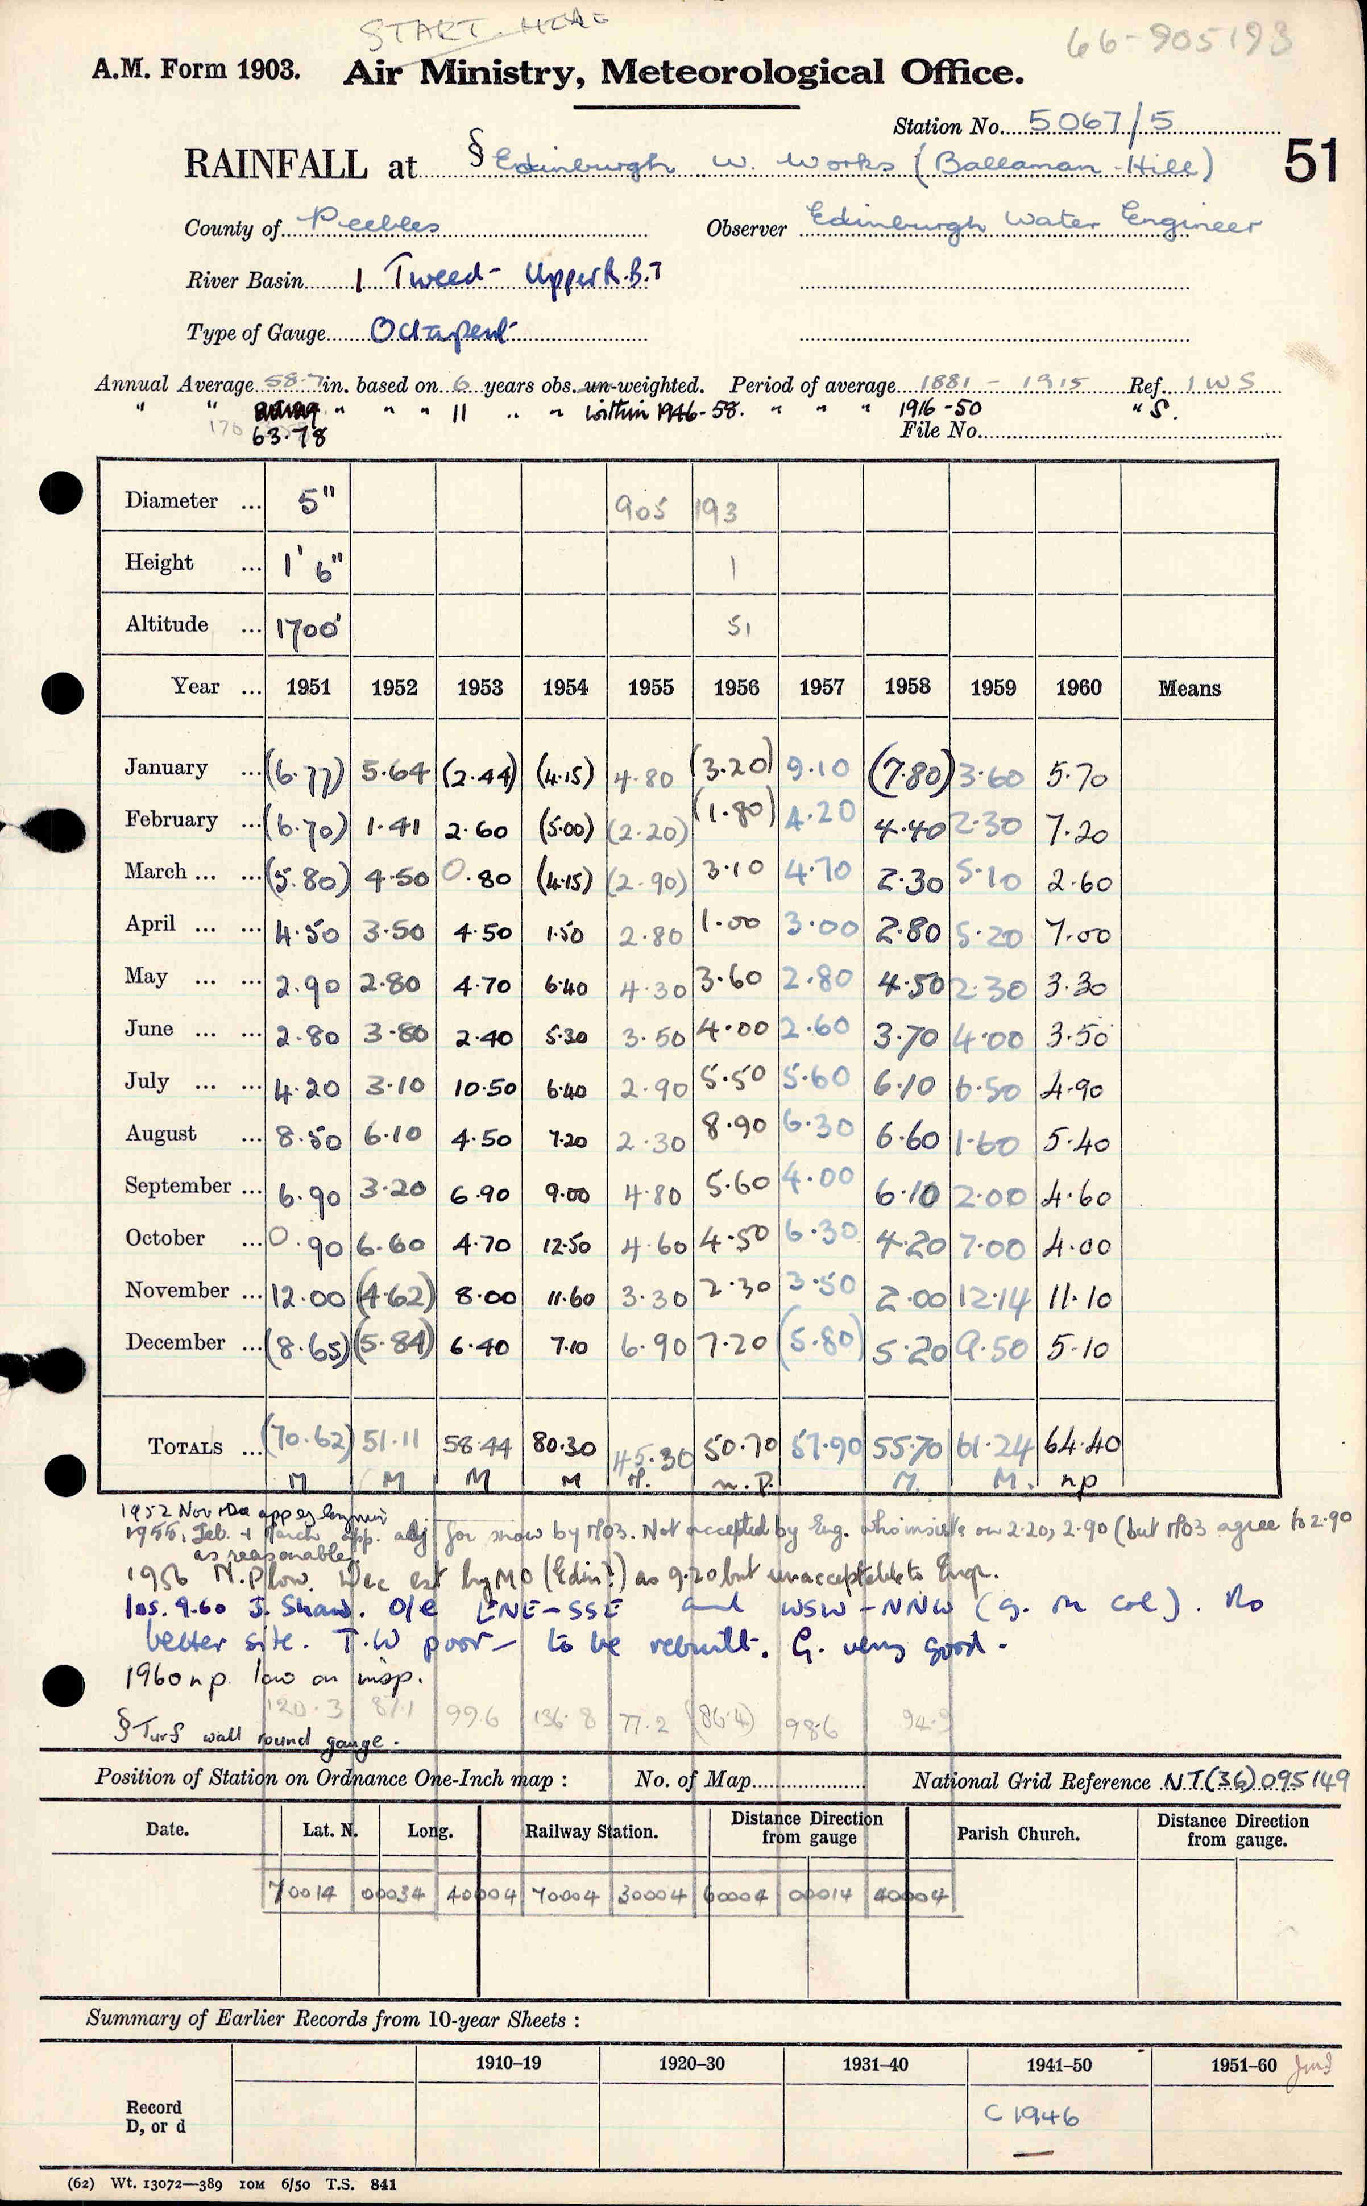 START HERE
66-905193
A.M. Form 1903. Air Ministry, Meteorological Office.
Station No. 5067/5
RAINFALL at § Edinburgh W. Works (Ballaman Hill) 51
County of Peebles Observer Edinburgh Water Engineer
River Basin 1 Tweed - Upper R.B.T
Type of Gauge Octapent
Annual Average 58.7 in. based on 6 years obs. un-weighted. Period of average 1881 - 1915 Ref. I W S
" " " " " 11 " " within 1946-58. " " " 1916-50 " S.
63.78 File No.
Diameter ... 5" 905 193
Height ... 1' 6" 1
Altitude ... 1700' 51
Year ... 1951 1952 1953 1954 1955 1956 1957 1958 1959 1960 Means
January ... (6.77) 5.64 (2.44) (4.15) 4.80 (3.20) 9.10 (7.80) 3.60 5.70
February ... (6.70) 1.41 2.60 (5.00) (2.20) (1.80) 4.20 4.40 2.30 7.20
March ... ... (5.80) 4.50 0.80 (4.15) (2.90) 3.10 4.70 2.30 5.10 2.60
April ... ... 4.50 3.50 4.50 1.50 2.80 1.00 3.00 2.80 5.20 7.00
May ... ... 2.90 2.80 4.70 6.40 4.30 3.60 2.80 4.50 2.30 3.30
June ... ... 2.80 3.80 2.40 5.30 3.50 4.00 2.60 3.70 4.00 3.50
July ... ... 4.20 3.10 10.50 6.40 2.90 5.50 5.60 6.10 6.50 4.90
August ... 8.50 6.10 4.50 7.20 2.30 8.90 6.30 6.60 1.60 5.40
September ... 6.90 3.20 6.90 9.00 4.80 5.60 4.00 6.10 2.00 4.60
October ... 0.90 6.60 4.70 12.50 4.60 4.50 6.30 4.20 7.00 4.00
November ... 12.00 (4.62) 8.00 11.60 3.30 2.30 3.50 2.00 12.14 11.10
December ... (8.65) (5.84) 6.40 7.10 6.90 7.20 (5.80) 5.20 9.50 5.10
TOTALS ... (70.62) 51.11 58.44 80.30 45.30 50.70 57.90 55.70 61.24 64.40
M M M M M. n.P. M. M. np
1952 Nov + Dec app by
1955, Feb. + March app. adj for snow by M03. Not accepted by Eng. who insists on 2.20, 2.90 (but M03 agree to 2.90
as reasonable)
1956 N.P low. Dec est by MO (Edin?) as 9.20 but unacceptable to Engr.
Ins. 9.60 J. Shaw. O/e ENE-SSE and WSW-NNW (g. on col). No
better site. T.W poor - to be rebuilt. G. very good.
1960 n p low on map.
120.3 87.1 99.6 136.8 77.2 (86.4) 98.6 94.9
§ Turf wall round gauge.
Position of Station on Ordnance One-Inch map : No. of Map National Grid Reference NT(36)095149
Date. Lat. N. Long. Railway Station. Distance Direction from gauge Parish Church. Distance Direction from gauge.
70014 00034 40004 70004 30004 60004 00014 40004
Summary of Earlier Records from 10-year Sheets :
1910–19 1920–30 1931–40 1941–50 1951–60
Record
D, or d C 1946
(62) Wt. 13072—389 10M 6/50 T.S. 841